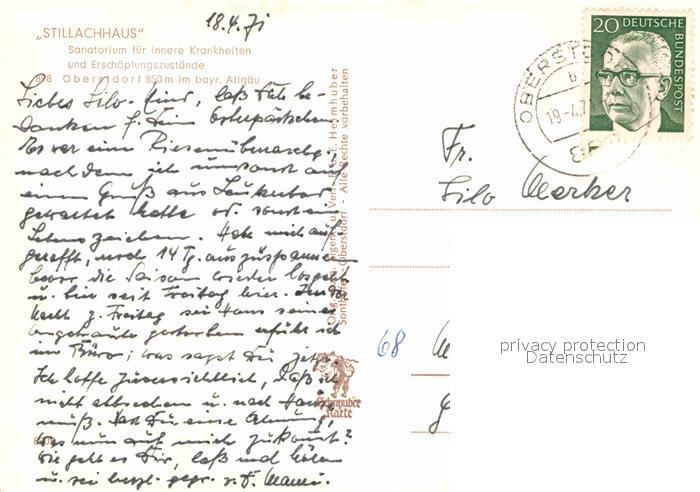 18.4.71
„STILLACHHAUS"
Sanatorium für innere Krankheiten
und Erschöpfungszustände
898 Oberstdorf 850 m im bayr. Allgäu
Liebes Silo-Kind, laß Dich be-
danken f. Dein Osterpäckchen
Es war eine Riesenüberraschg.
nachdem ich umsonst auf
einen Gruß aus Leukerbad
gewartet hatte od. sonst ein
Lebenszeichen. Habe mich auf-
gerafft, noch 14 Tg. auszuspannen
bevor die Saison wieder losgeht
u. bin seit Freitag hier. In der
Nacht z. Freitag sei Hans seine
Angetraute gestorben erfuhr ich
im Büro; was sagst Du jetzt
Ich hoffe zuversichtlich, daß ich
nicht abbrechen u. nach Hause
muß. Hast Du eine Ahnung,
was nun auf mich zukommt?
Wie geht es Dir, laß mal hören
u. sei herzl. gegr. v. D. Mama.
Orig.-Aufn., Eigentum u. Verl. Foto E. Heimhuber
Sonthofen-Oberstdorf - Alle Rechte vorbehalten
Schöning
Karte
20 DEUTSCHE
BUNDESPOST
OBERSTDORF
b
19-4.7
Fr.
Silo Merker
68
privacy protection
Datenschutz